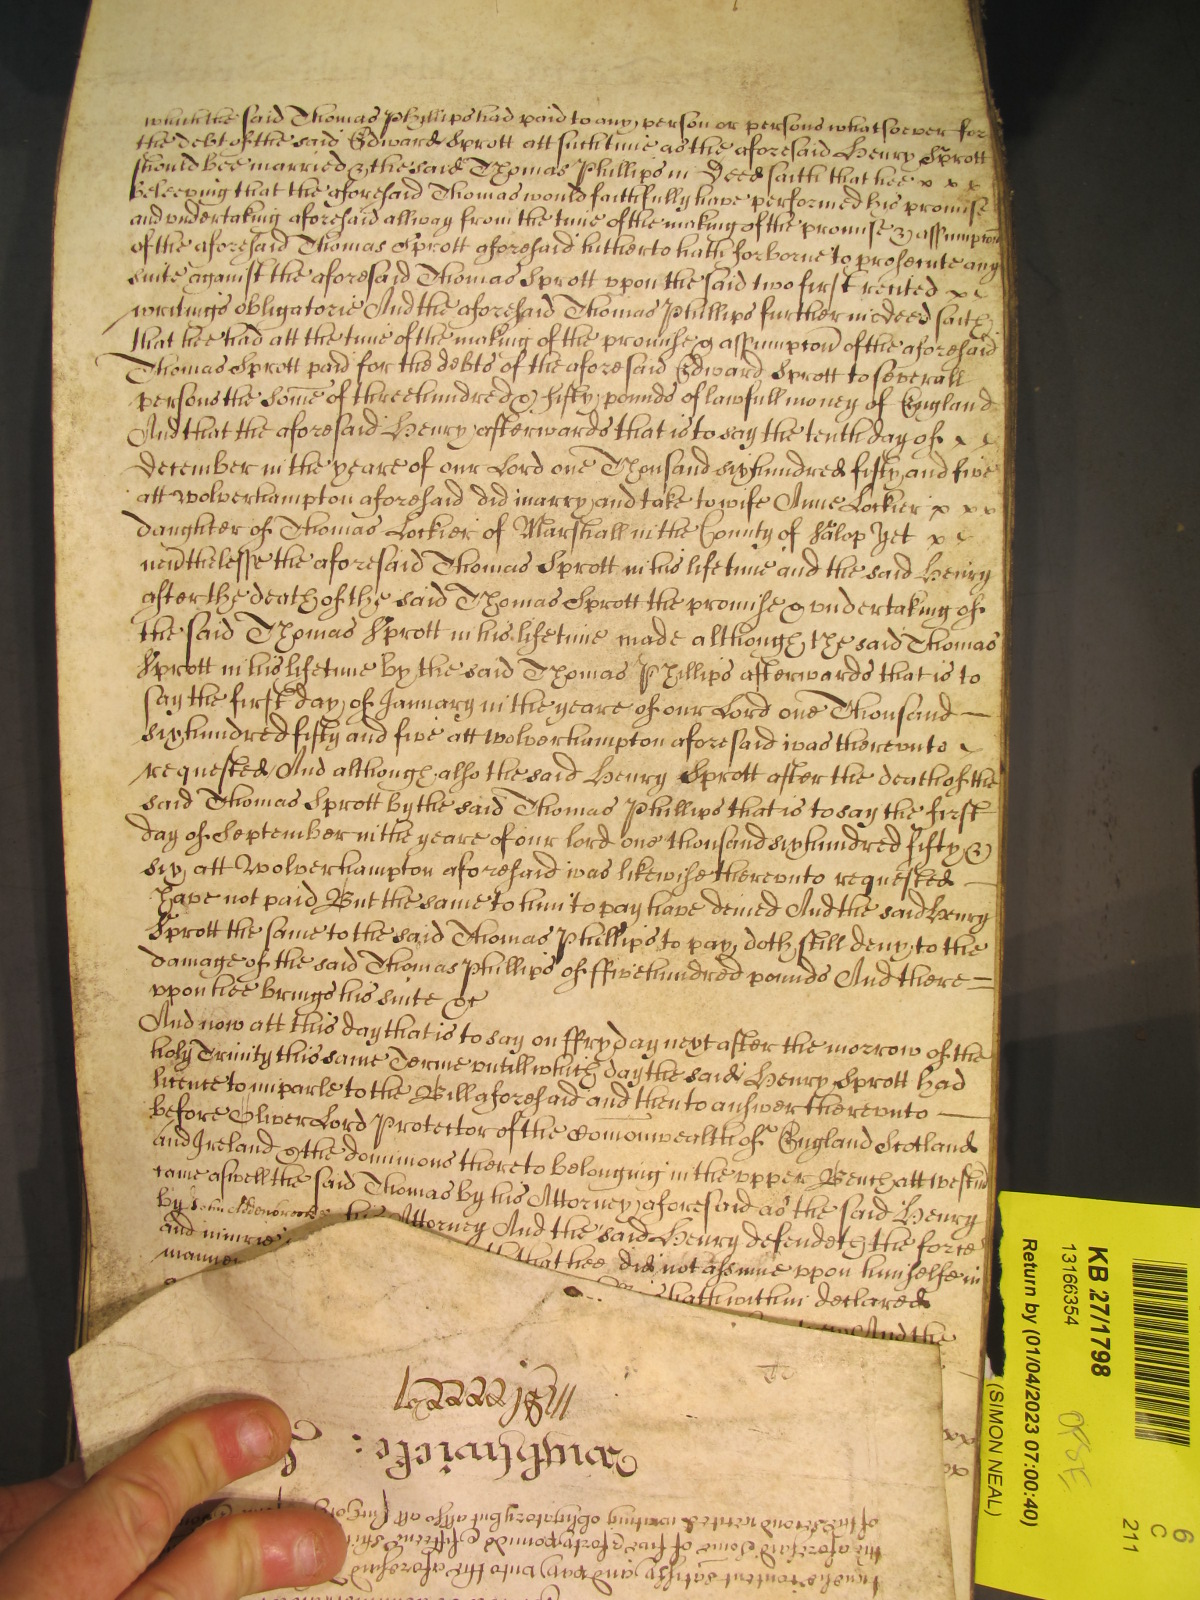 which the said Thomas Phillips had paid to any person or persons whatsoever for
the debt of the said Edward Sprott att such time as the aforesaid Henry Sprott
should bee married & the said Thomas Phillips in Deed saith that hee x x x
beleeving that the aforesaid Thomas would faithfully have performed his promise
and undertaking aforesaid allway from the time of the making of the promise & assumption
of the aforesaid Thomas Sprott aforesaid hitherto hath forborne to prosecute any
suite against the aforesaid Thomas Sprott vpon the said two first recited x x
writings obligatorie And the aforesaid Thomas Phillips further in deed saith
that hee had att the time of the making of the promise & assumption of the aforesaid
Thomas Sprott paid for the debts of the aforesaid Edward Sprott to severall
persons the some of threehundred & fifty pounds of lawfull money of England
And that the aforesaid Henry afterwards that is to say the tenth day of x x
December in the yeare of our Lord one Thousand sixhundred fifty and five
att Wolverhampton aforesaid did marry and take to wife Anne Lockier x x x
daughter of Thomas Lockier of Marshall in the County of Salop Yet x x
neverthelesse the aforesaid Thomas Sprott in his life time and the said Henry
after the death of the said Thomas Sprott the promise & undertaking of
the said Thomas Sprott in his lifetime made although the said Thomas
Sprott in his lifetime by the said Thomas Phillips afterwards that is to
say the first day of January in the yeare of our Lord one Thousand —
sixhundred fifty and five att Wolverhampton aforesaid was therevnto
requested And although also the said Henry Sprott after the death of the
said Thomas Sprott by the said Thomas Phillips that is to say the first
day of September in the yeare of our lord one thousand sixhundred fifty &
six att Wolverhampton aforesaid was likewise therevnto requested —
have not paid But the same to him to pay have denied And the said Henry
Sprott the same to the said Thomas Phillips to pay doth still deny to the
damage of the said Thomas Phillips of ffivehundred pounds And there=
vpon hee brings his suite &c
And now att this day that is to say on ffryday next after the morrow of the
holy Trinity this same Terme vntill which day the said Henry Sprott had
licence to imparle to the Bill aforesaid and then to answer therevnto —
before Oliver Lord Protector of the Comonwealth of England Scotland
and Ireland & the dominions thereto belonging in the vpper Bench att Westm
came aswell the said Thomas by his Attorney aforesaid as the said Henry
by John his Attorney And the said Henry defendeth the force
and iniurie that hee did not assume vpon himselfe in
manner hath within declared
And the
KB 27/1798
13166354
Return by (01/04/2023 07:00:40)
(SIMON NEAL)
6
C
211